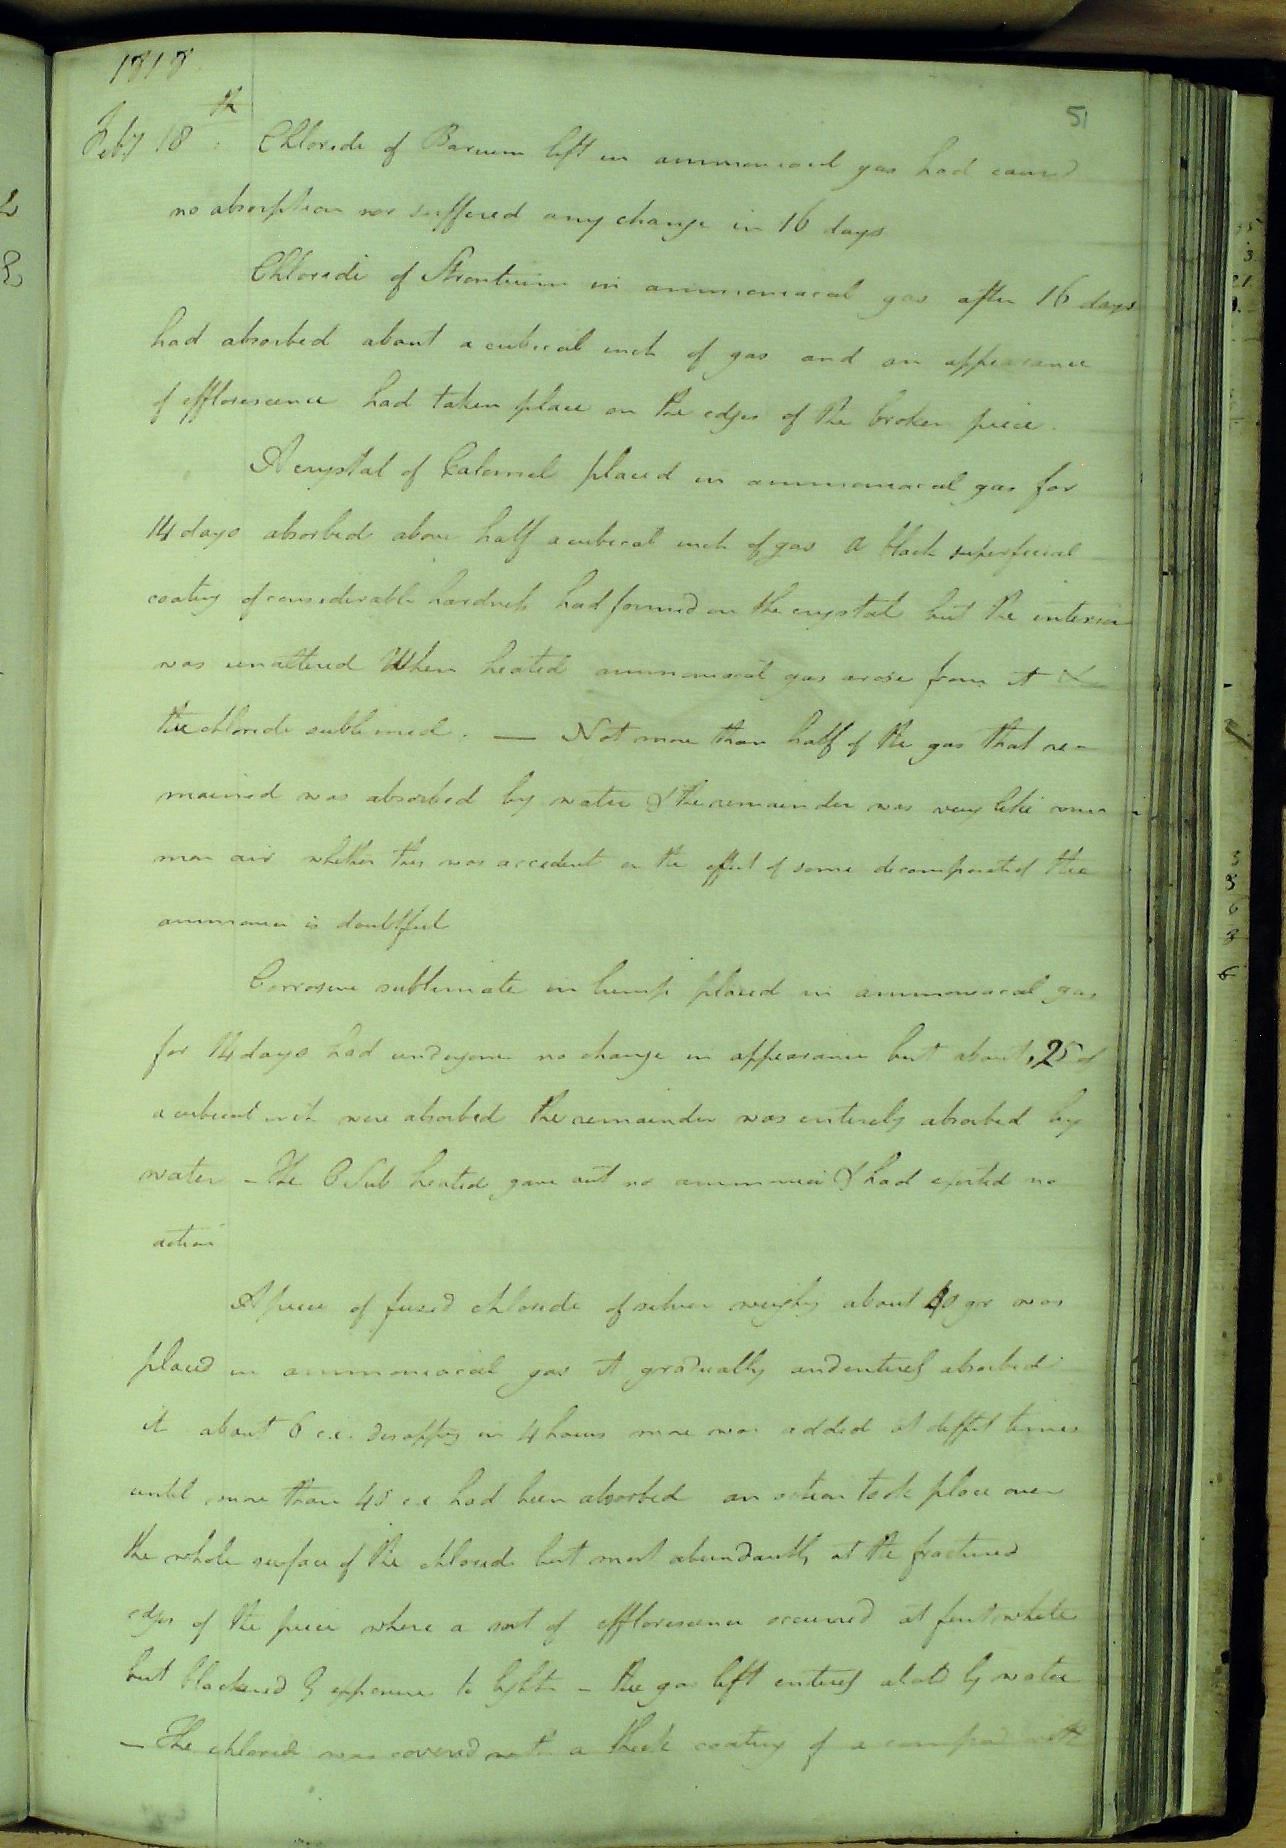 1818
51
Feby 18th Chloride of Barium left in ammoniacal gas had caused
no absorption nor suffered any change in 16 days
Chloride of Strontium in ammoniacal gas after 16 days
had absorbed about a cubical inch of gas and an appearance
of efflorescence had taken place on the edges of the broken piece.
A crystal of Calomel placed in ammoniacal gas for
14 days absorbed above half a cubical inch of gas a black superficial
coating of considerable hardness had formed on the crystal but the interior
was unaltered When heated ammoniacal gas arose from it &
the chloride sublimed. — Not more than half of the gas that re-
mained was absorbed by water & the remainder was very like com
mon air whether this was accident or the effect of some decompositn of the
ammonia is doubtful
Corrosive sublimate in lump placed in ammoniacal gas
for 14 days had undergone no change in appearance but about .25 of
a cubical inch were absorbed the remainder was entirely absorbed by
water - The C Sub heated gave out no ammonia & had exerted no
action
A piece of fused chloride of silver weighg about gr was
placed in ammoniacal gas it gradually and entirely absorbed
it about 6 c.i. disappg in 4 hours more was added at diffet times
until more than 40 c.i had been absorbed an action took place over
the whole surface of the chloride but most abundantly at the fractured
edges of the piece where a sort of efflorescence occurred at first white
but blackened by exposure to light - the gas left entirely absbd by water
— The chloride was covered with a thick coating of a compound